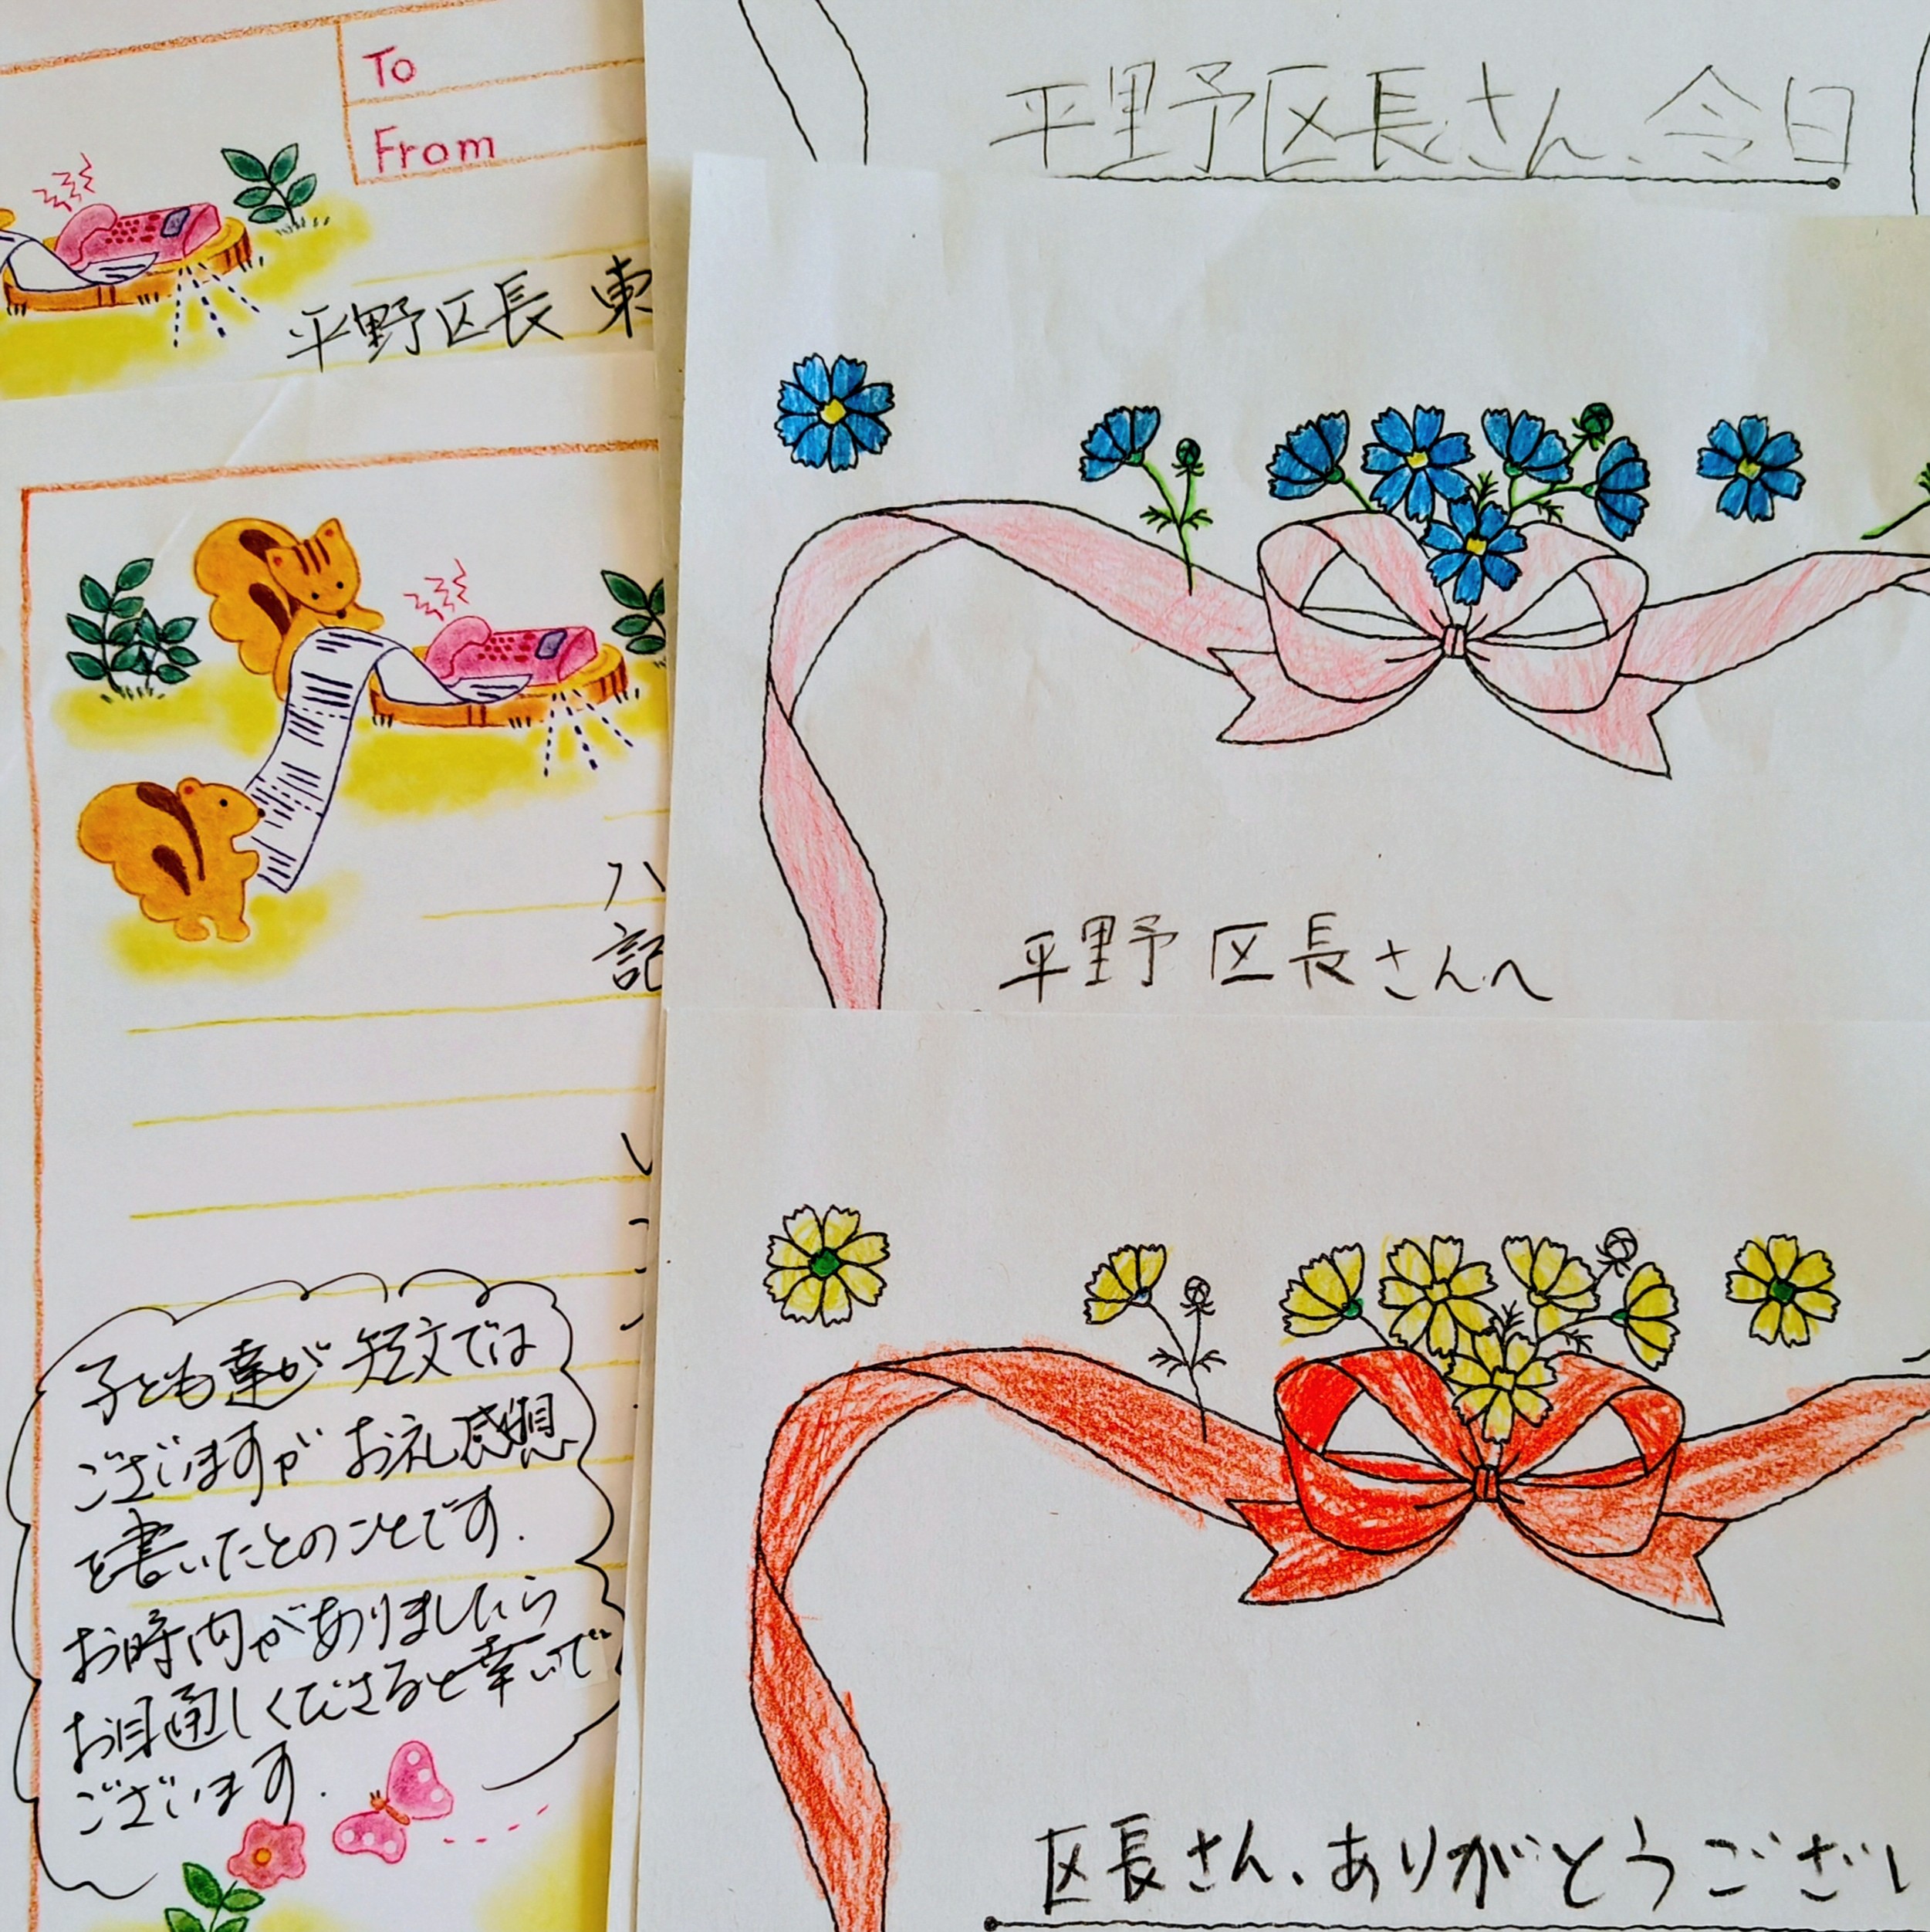 To
From
平野区長 東
八
記
子ども達が 短文では
ございますが お礼感想
を書いたとのことです.
お時間がありましたら
お目通しくださると幸いで
ございます.
平野区長さん、今日
平野区長さんへ
区長さん、ありがとうござい